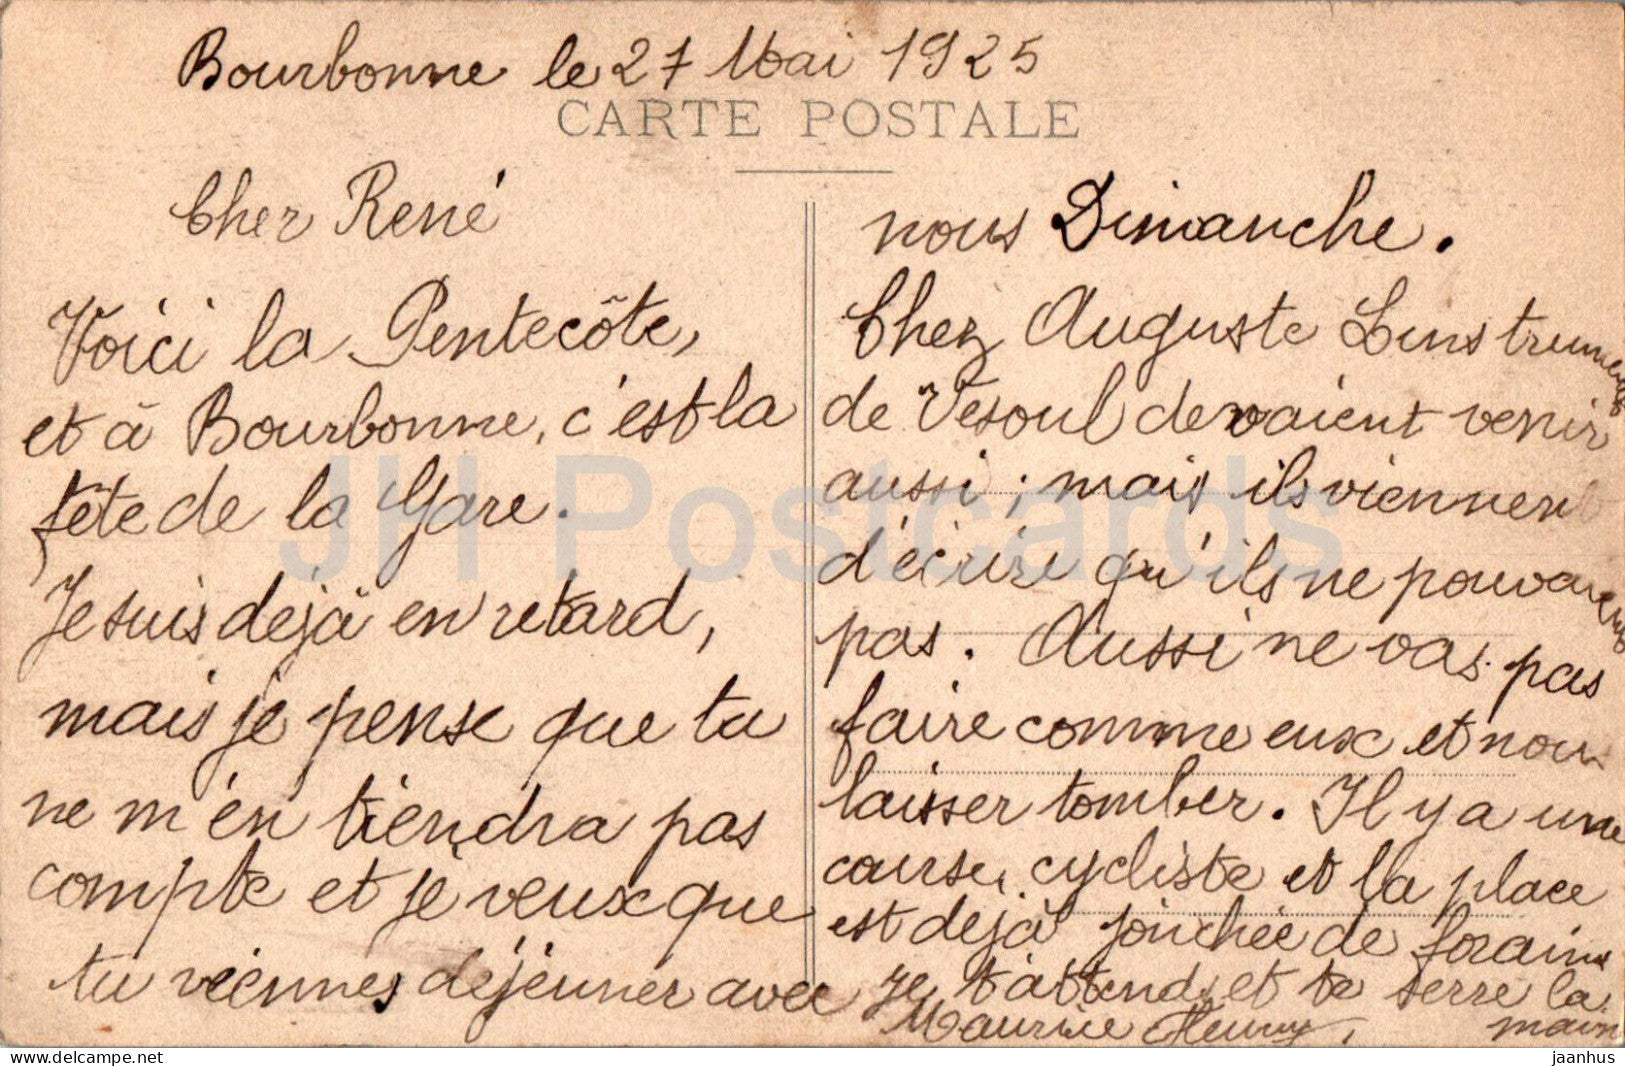 Bourbonne le 27 Mai 1925
CARTE POSTALE
Cher René
Voici la Pentecôte,
et à Bourbonne, c'est la
fête de la Gare.
Je suis déjà en retard,
mais je pense que tu
ne m'en tiendra pas
compte et je veux que
tu viennes déjeuner avec
nous Dimanche.
Chez Auguste
de Vesoul devaient venir
aussi ; mais ils viennent
d'écrire qu'ils ne pouvaient
pas. Aussi ne vas pas
faire comme eux et nous
laisser tomber. Il y a une
course cycliste et la place
est déjà jonchée de forains
Je t'attends et te serre la
main
Maurice
JH Postcards
www.delcampe.net
jaanhus